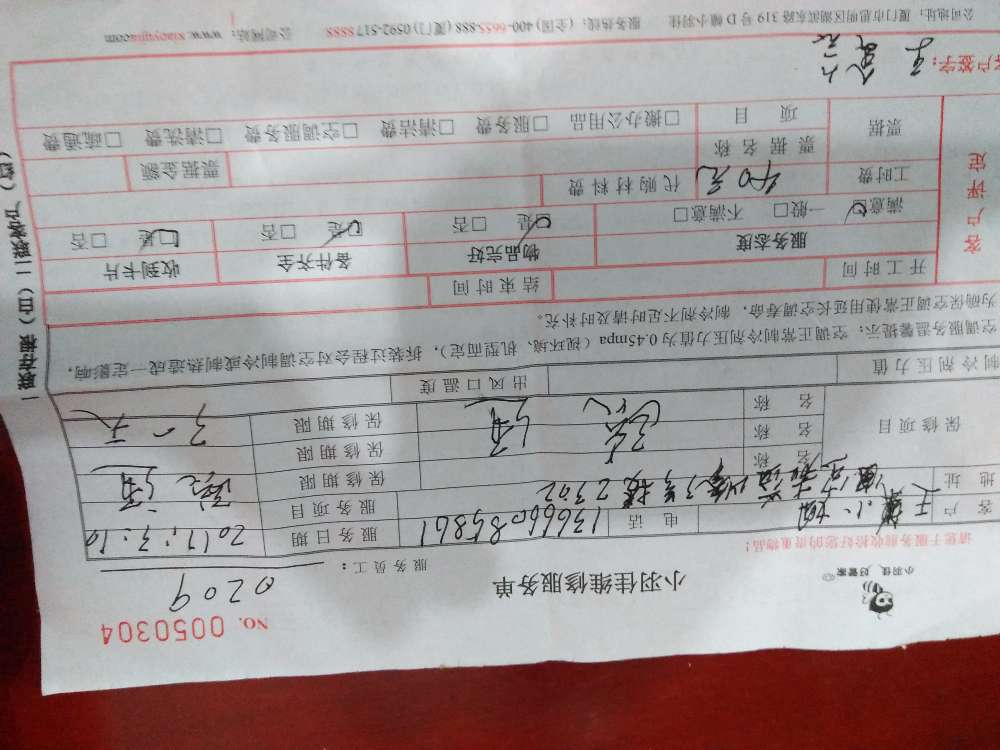 小羽佳 好管家
小羽佳维修服务单
NO. 0050304
请您于服务前收拾好您的贵重物品!
服务员工: 0209
客户 电话 13666085861 服务日期 2017.3.10
地址 2302 服务项目
保修项目 名称 保修期限
名称 保修期限
名称 保修期限
制冷剂压力值 出风口温度
空调服务温馨提示:空调正常制冷剂压力值为0.45mpa(视环境、机型而定),拆装过程会对空调制冷或制热造成一定影响,
为确保空调正常使用延长空调寿命,制冷剂不足时请及时补充。
开工时间 结束时间
客户评定
服务态度 物品完好 备件齐全 收到卡片
☑满意 一般□ 不满意□ ☑是 □否 ☑是 □否 ☑是 □否
工时费 40元 代购材料费
票据 票据名称 票据金额
项目 □搬办公用品 □服务费 □清洁费 □空调服务费 □清洗费 □疏通费
客户签字:
公司地址:厦门市思明区湖滨东路319号D幢小羽佳 服务热线:(全国)400-6655-888 (厦门)0592-5178888 公司网站:www.xiaoyujia.com
一联存根(白)二联客户(红)